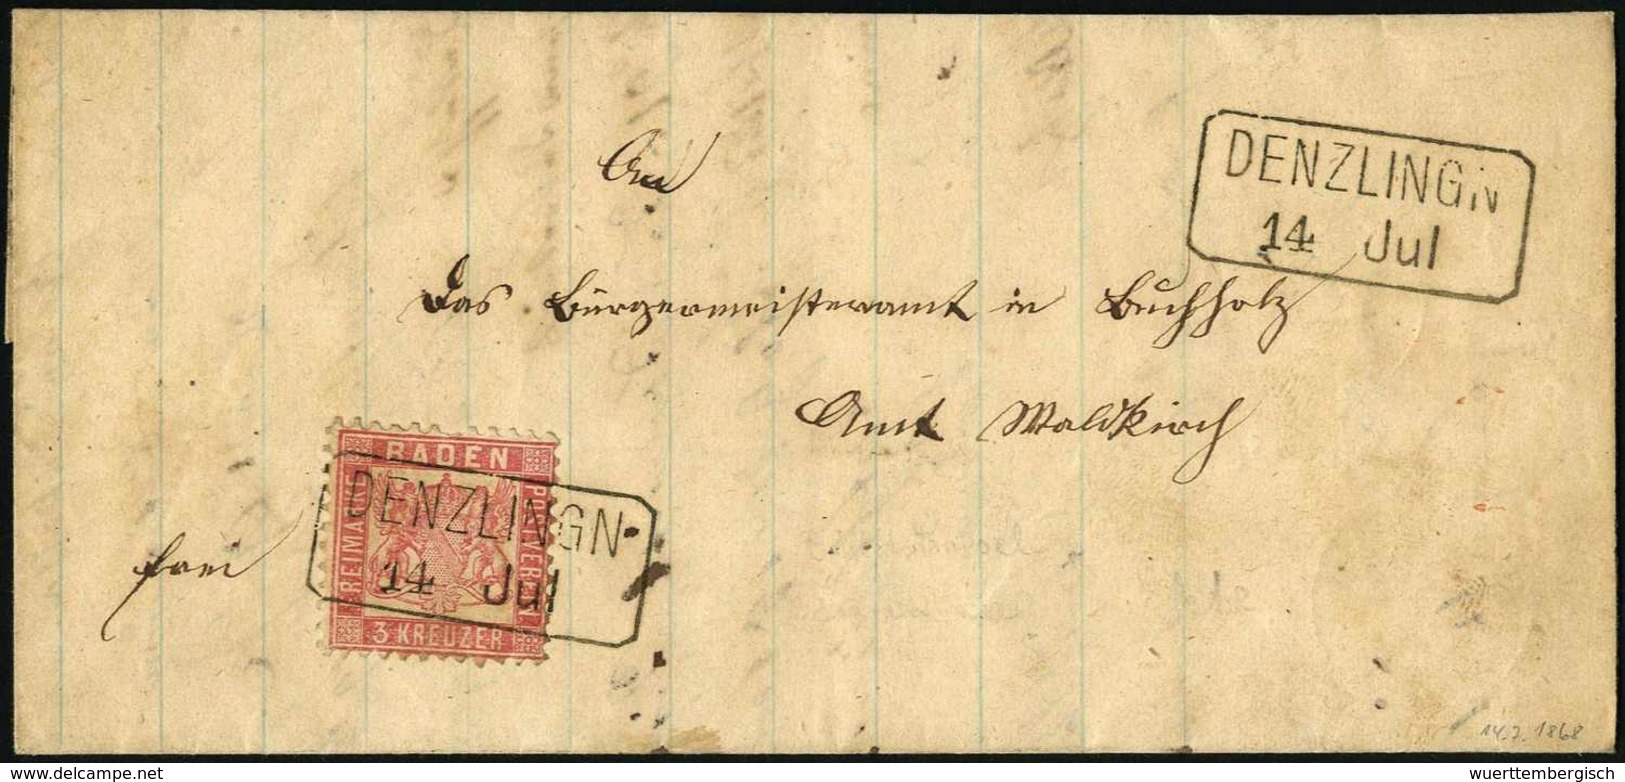 DENZLINGN
14 Jul
An
das Bürgermeisteramt in Buchholz
Amt Waldkirch
frei
BADEN
FREIMARKE
POSTVEREIN
3 KREUZER
DENZLINGN
14 Jul
14.7.1868
www.delcampe.net
wuerttembergisch